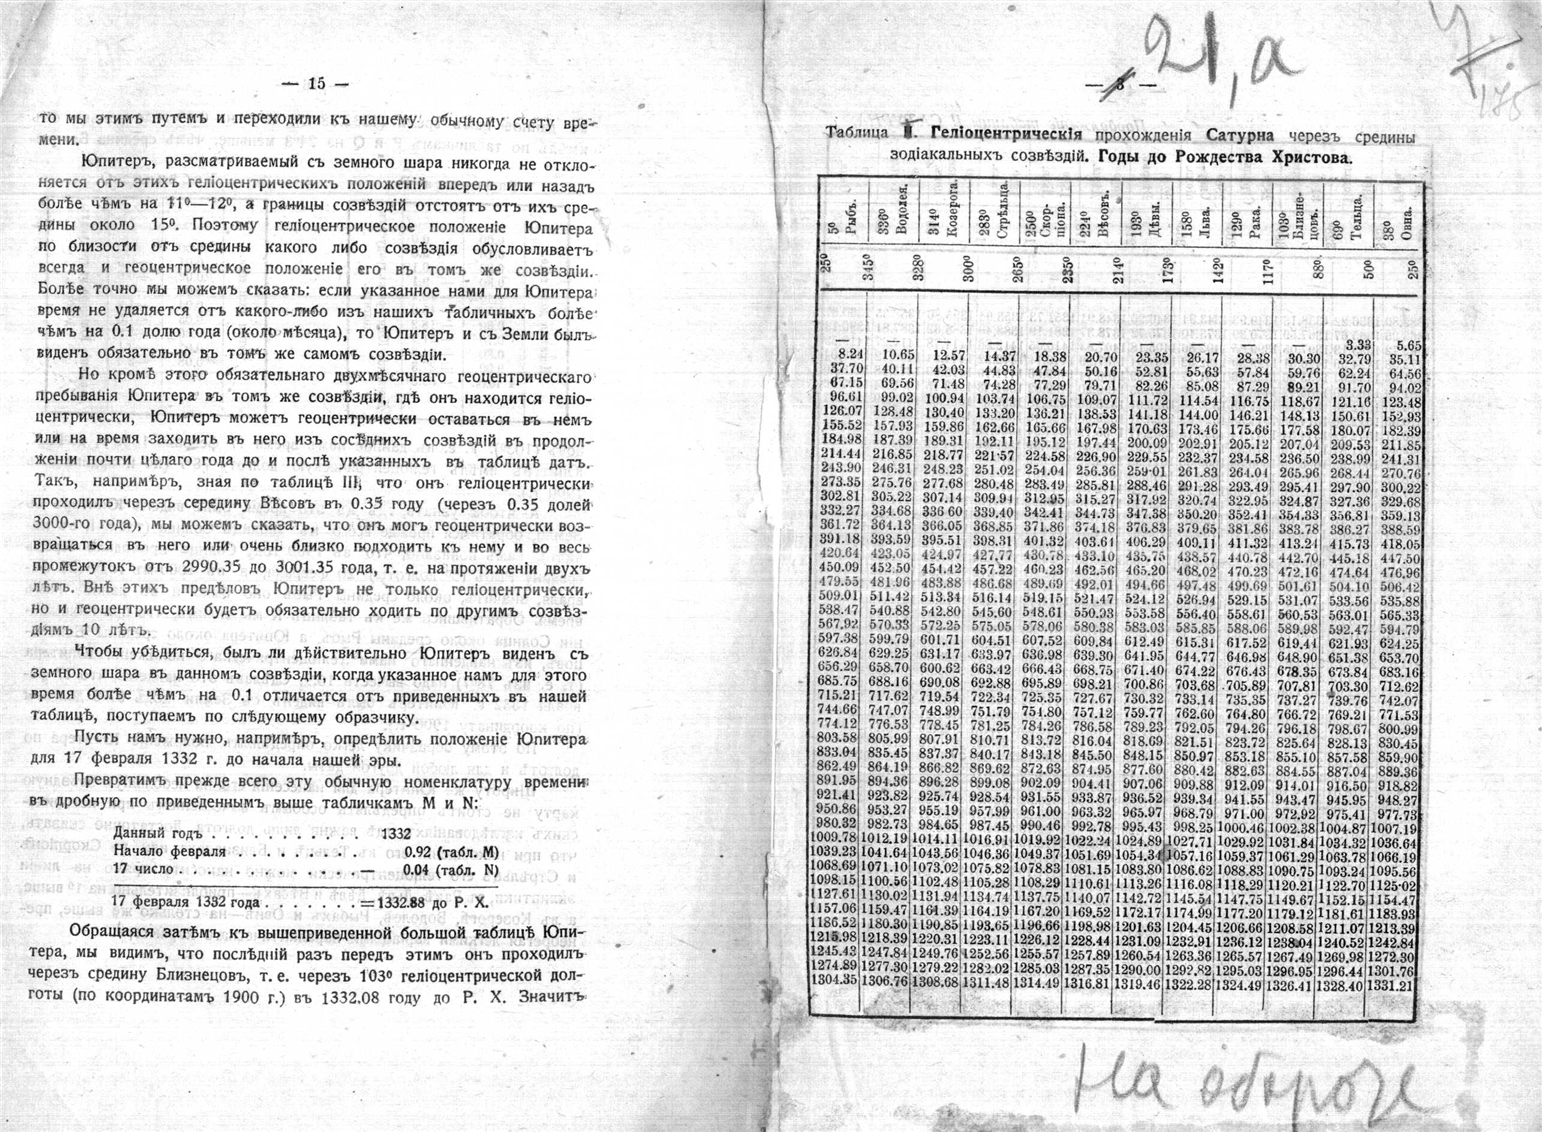 — 15 —
то мы этимъ путемъ и переходили къ нашему обычному счету вре-
мени.
Юпитеръ, разсматриваемый съ земного шара никогда не откло-
няется отъ этихъ геліоцентрическихъ положеній впередъ или назадъ
болѣе чѣмъ на 11⁰—12⁰, а границы созвѣздій отстоятъ отъ ихъ сре-
дины около 15⁰. Поэтому геліоцентрическое положеніе Юпитера
по близости отъ средины какого либо созвѣздія обусловливаетъ
всегда и геоцентрическое положеніе его въ томъ же созвѣздіи.
Болѣе точно мы можемъ сказать: если указанное нами для Юпитера
время не удаляется отъ какого-либо изъ нашихъ табличныхъ болѣе
чѣмъ на 0.1 долю года (около мѣсяца), то Юпитеръ и съ Земли былъ
виденъ обязательно въ томъ же самомъ созвѣздіи.
Но кромѣ этого обязательнаго двухмѣсячнаго геоцентрическаго
пребыванія Юпитера въ томъ же созвѣздіи, гдѣ онъ находится геліо-
центрически, Юпитеръ можетъ геоцентрически оставаться въ немъ
или на время заходить въ него изъ сосѣднихъ созвѣздій въ продол-
женіи почти цѣлаго года до и послѣ указанныхъ въ таблицѣ датъ.
Такъ, напримѣръ, зная по таблицѣ III, что онъ геліоцентрически
проходилъ черезъ середину Вѣсовъ въ 0.35 году (черезъ 0.35 долей
3000-го года), мы можемъ сказать, что онъ могъ геоцентрически воз-
вращаться въ него или очень близко подходить къ нему и во весь
промежутокъ отъ 2990.35 до 3001.35 года, т. е. на протяженіи двухъ
лѣтъ. Внѣ этихъ предѣловъ Юпитеръ не только геліоцентрически,
но и геоцентрически будетъ обязательно ходить по другимъ созвѣз-
діямъ 10 лѣтъ.
Чтобы убѣдиться, былъ ли дѣйствительно Юпитеръ виденъ съ
земного шара въ данномъ созвѣздіи, когда указанное намъ для этого
время болѣе чѣмъ на 0.1 отличается отъ приведенныхъ въ нашей
таблицѣ, поступаемъ по слѣдующему образчику.
Пусть намъ нужно, напримѣръ, опредѣлить положеніе Юпитера
для 17 февраля 1332 г. до начала нашей эры.
Превратимъ прежде всего эту обычную номенклатуру времени
въ дробную по приведеннымъ выше табличкамъ M и N:
Данный годъ . . . . . . . . . . . 1332
Начало февраля . . . . . . . . . . 0.92 (табл. M)
17 число . . . . . . . . . . . . — 0.04 (табл. N)
17 февраля 1332 года . . . . . . =1332.88 до Р. Х.
Обращаяся затѣмъ къ вышеприведенной большой таблицѣ Юпи-
тера, мы видимъ, что послѣдній разъ передъ этимъ онъ проходилъ
черезъ средину Близнецовъ, т. е. черезъ 103⁰ геліоцентрической дол-
готы (по координатамъ 1900 г.) въ 1332.08 году до Р. Х. Значитъ
21, а
— 3 —
Таблица II. Геліоцентрическія прохожденія Сатурна черезъ средины
зодіакальныхъ созвѣздій. Годы до Рождества Христова.
5⁰ Рыбъ. 336⁰ Водолея. 314⁰ Козерога. 283⁰ Стрѣльца. 250⁰ Скор-піона. 224⁰ Вѣсовъ. 193⁰ Дѣвы. 158⁰ Льва. 129⁰ Рака. 103⁰ Близне-цовъ. 69⁰ Тельца. 38⁰ Овна.
25⁰ 345⁰ 328⁰ 300⁰ 265⁰ 235⁰ 214⁰ 173⁰ 142⁰ 117⁰ 88⁰ 50⁰ 25⁰
— — — — — — — — — — 3.33 5.65
8.24 10.65 12.57 14.37 18.38 20.70 23.35 26.17 28.38 30.30 32.79 35.11
37.70 40.11 42.03 44.83 47.84 50.16 52.81 55.63 57.84 59.76 62.24 64.56
67.15 69.56 71.48 74.28 77.29 79.71 82.26 85.08 87.29 89.21 91.70 94.02
96.61 99.02 100.94 103.74 106.75 109.07 111.72 114.54 116.75 118.67 121.16 123.48
126.07 128.48 130.40 133.20 136.21 138.53 141.18 144.00 146.21 148.13 150.61 152.93
155.52 157.93 159.86 162.66 165.66 167.98 170.63 173.46 175.66 177.58 180.07 182.39
184.98 187.39 189.31 192.11 195.12 197.44 200.09 202.91 205.12 207.04 209.53 211.85
214.44 216.85 218.77 221.57 224.58 226.90 229.55 232.37 234.58 236.50 238.99 241.31
243.90 246.31 248.23 251.02 254.04 256.36 259.01 261.83 264.04 265.96 268.44 270.76
273.35 275.76 277.68 280.48 283.49 285.81 288.46 291.28 293.49 295.41 297.90 300.22
302.81 305.22 307.14 309.94 312.95 315.27 317.92 320.74 322.95 324.87 327.36 329.68
332.27 334.68 336.60 339.40 342.41 344.73 347.38 350.20 352.41 354.33 356.81 359.13
361.72 364.13 366.05 368.85 371.86 374.18 376.83 379.65 381.86 383.78 386.27 388.59
391.18 393.59 395.51 398.31 401.32 403.61 406.29 409.11 411.32 413.24 415.73 418.05
420.64 423.05 424.97 427.77 430.78 433.10 435.75 438.57 440.78 442.70 445.18 447.50
450.09 452.50 454.42 457.22 460.23 462.56 465.20 468.02 470.23 472.16 474.64 476.96
479.55 481.96 483.88 486.68 489.69 492.01 494.66 497.48 499.69 501.61 504.10 506.42
509.01 511.42 513.34 516.14 519.15 521.47 524.12 526.94 529.15 531.07 533.56 535.88
538.47 540.88 542.80 545.60 548.61 550.93 553.58 556.40 558.61 560.53 563.01 565.33
567.92 570.33 572.25 575.05 578.06 580.38 583.03 585.85 588.06 589.98 592.47 594.79
597.38 599.79 601.71 604.51 607.52 609.84 612.49 615.31 617.52 619.44 621.93 624.25
626.84 629.25 631.17 633.97 636.98 639.30 641.95 644.77 646.98 648.90 651.38 653.70
656.29 658.70 600.62 663.42 666.43 668.75 671.40 674.22 676.43 678.35 673.84 683.16
685.75 688.16 690.08 692.88 695.89 698.21 700.86 703.68 705.89 707.81 703.30 712.62
715.21 717.62 719.54 722.34 725.35 727.67 730.32 733.14 735.35 737.27 739.76 742.07
744.66 747.07 748.99 751.79 754.80 757.12 759.77 762.60 764.80 766.72 769.21 771.53
774.12 776.53 778.45 781.25 784.26 786.58 789.23 792.05 794.26 796.18 798.67 800.99
803.58 805.99 807.91 810.71 813.72 816.04 818.69 821.51 823.72 825.64 828.13 830.45
833.04 835.45 837.37 840.17 843.18 845.50 848.15 850.97 853.18 855.10 857.58 859.90
862.49 864.19 866.82 869.62 872.63 874.95 877.60 880.42 882.63 884.55 887.04 889.36
891.95 894.36 896.28 899.08 902.09 904.41 907.06 909.88 912.09 914.01 916.50 918.82
921.41 923.82 925.74 928.54 931.55 933.87 936.52 939.34 941.55 943.47 945.95 948.27
950.86 953.27 955.19 957.99 961.00 963.32 965.97 968.79 971.00 972.92 975.41 977.73
980.32 982.73 984.65 987.45 990.46 992.78 995.43 998.25 1000.46 1002.38 1004.87 1007.19
1009.78 1012.19 1014.11 1016.91 1019.92 1022.24 1024.89 1027.71 1029.92 1031.84 1034.32 1036.64
1039.23 1041.64 1043.56 1046.36 1049.37 1051.69 1054.34 1057.16 1059.37 1061.29 1063.78 1066.19
1068.69 1071.10 1073.02 1075.82 1078.83 1081.15 1083.80 1086.62 1088.83 1090.75 1093.24 1095.56
1098.15 1100.56 1102.48 1105.28 1108.29 1110.61 1113.26 1116.08 1118.29 1120.21 1122.70 1125.02
1127.61 1130.02 1131.94 1134.74 1137.75 1140.07 1142.72 1145.54 1147.75 1149.67 1152.15 1154.47
1157.06 1159.47 1161.39 1164.19 1167.20 1169.52 1172.17 1174.99 1177.20 1179.12 1181.61 1183.93
1186.52 1180.30 1190.85 1193.65 1196.66 1198.98 1201.63 1204.45 1206.66 1208.58 1211.07 1213.39
1215.98 1218.39 1220.31 1223.11 1226.12 1228.44 1231.09 1232.91 1236.12 1238.04 1240.52 1242.84
1245.43 1247.84 1249.76 1252.56 1255.57 1257.89 1260.54 1263.36 1265.57 1267.49 1269.98 1272.30
1274.89 1277.30 1279.22 1282.02 1285.03 1287.35 1290.00 1292.82 1295.03 1296.95 1296.44 1301.76
1304.35 1306.76 1308.68 1311.48 1314.49 1316.81 1319.46 1322.28 1324.49 1326.41 1328.40 1331.21
На обороте